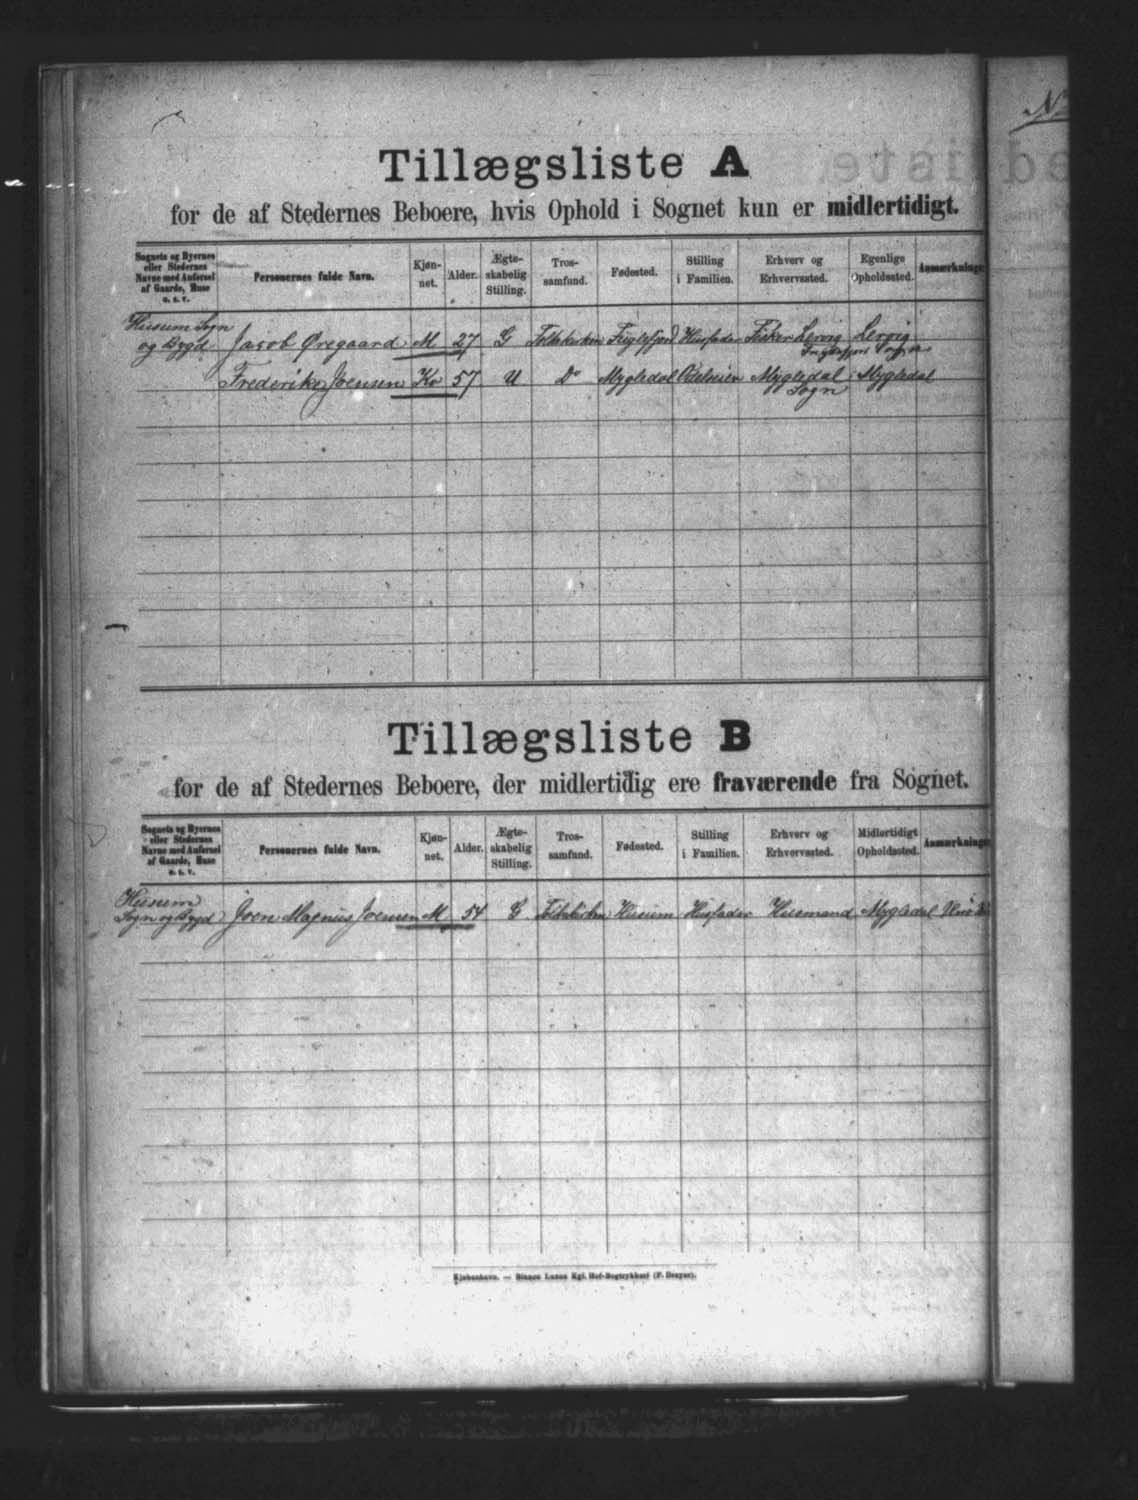 Tillægsliste A
for de af Stedernes Beboere, hvis Ophold i Sognet kun er midlertidigt.
Sognets og Byernes eller Stedernes Navne med Anførsel af Gaarde, Huse o. s. v. Personernes fulde Navn. Kjøn-net. Alder. Ægte-skabelig Stilling. Tros-samfund. Fødested. Stilling i Familien. Erhverv og Erhvervssted. Egenlige Opholdssted. Anmærkninger
Husum Sogn
og Bygd Jacob Øregaard M 27 G Folkekirken Fuglefjord Husfader Fisker Lervig Lervig
Fuglefjord Sogn
Frederikke Joensen Kv 57 U Do Mygledal Mygledal Mygledal
Sogn
Tillægsliste B
for de af Stedernes Beboere, der midlertidig ere fraværende fra Sognet.
Sognets og Byernes eller Stedernes Navne med Anførsel af Gaarde, Huse o. s. v. Personernes fulde Navn. Kjøn-net. Alder. Ægte-skabelig Stilling. Tros-samfund. Fødested. Stilling i Familien. Erhverv og Erhvervssted. Midlertidigt Opholdssted. Anmærkninger
Husum
Sogn og Bygd Joen Magnus Joensen M 54 G Folkekirken Husum Husfader Husmand Mygledal
Kjøbenhavn. — Bianco Lunos Kgl. Hof-Bogtrykkeri (F. Dreyer).